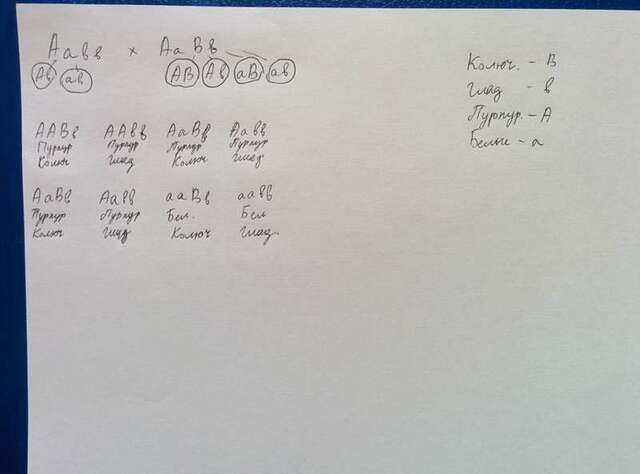 Аавв × АаВв
Ав ав АВ Ав аВ ав
Колюч. - В
глад - в
Пурпур. - А
Белые - а
ААВв ААвв АаВв Аавв
Пурпур Пурпур Пурпур Пурпур
Колюч глад Колюч глад
АаВв Аавв ааВв аавв
Пурпур Пурпур Бел. Бел
Колюч глад Колюч глад.